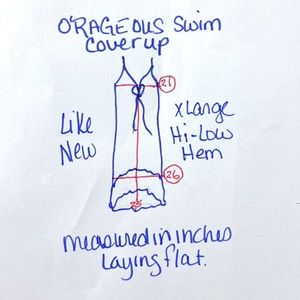 O'RAGEOUS Swim
Coverup
21
Like
New
XLarge
Hi-Low
Hem
26
measured in inches
Laying flat.